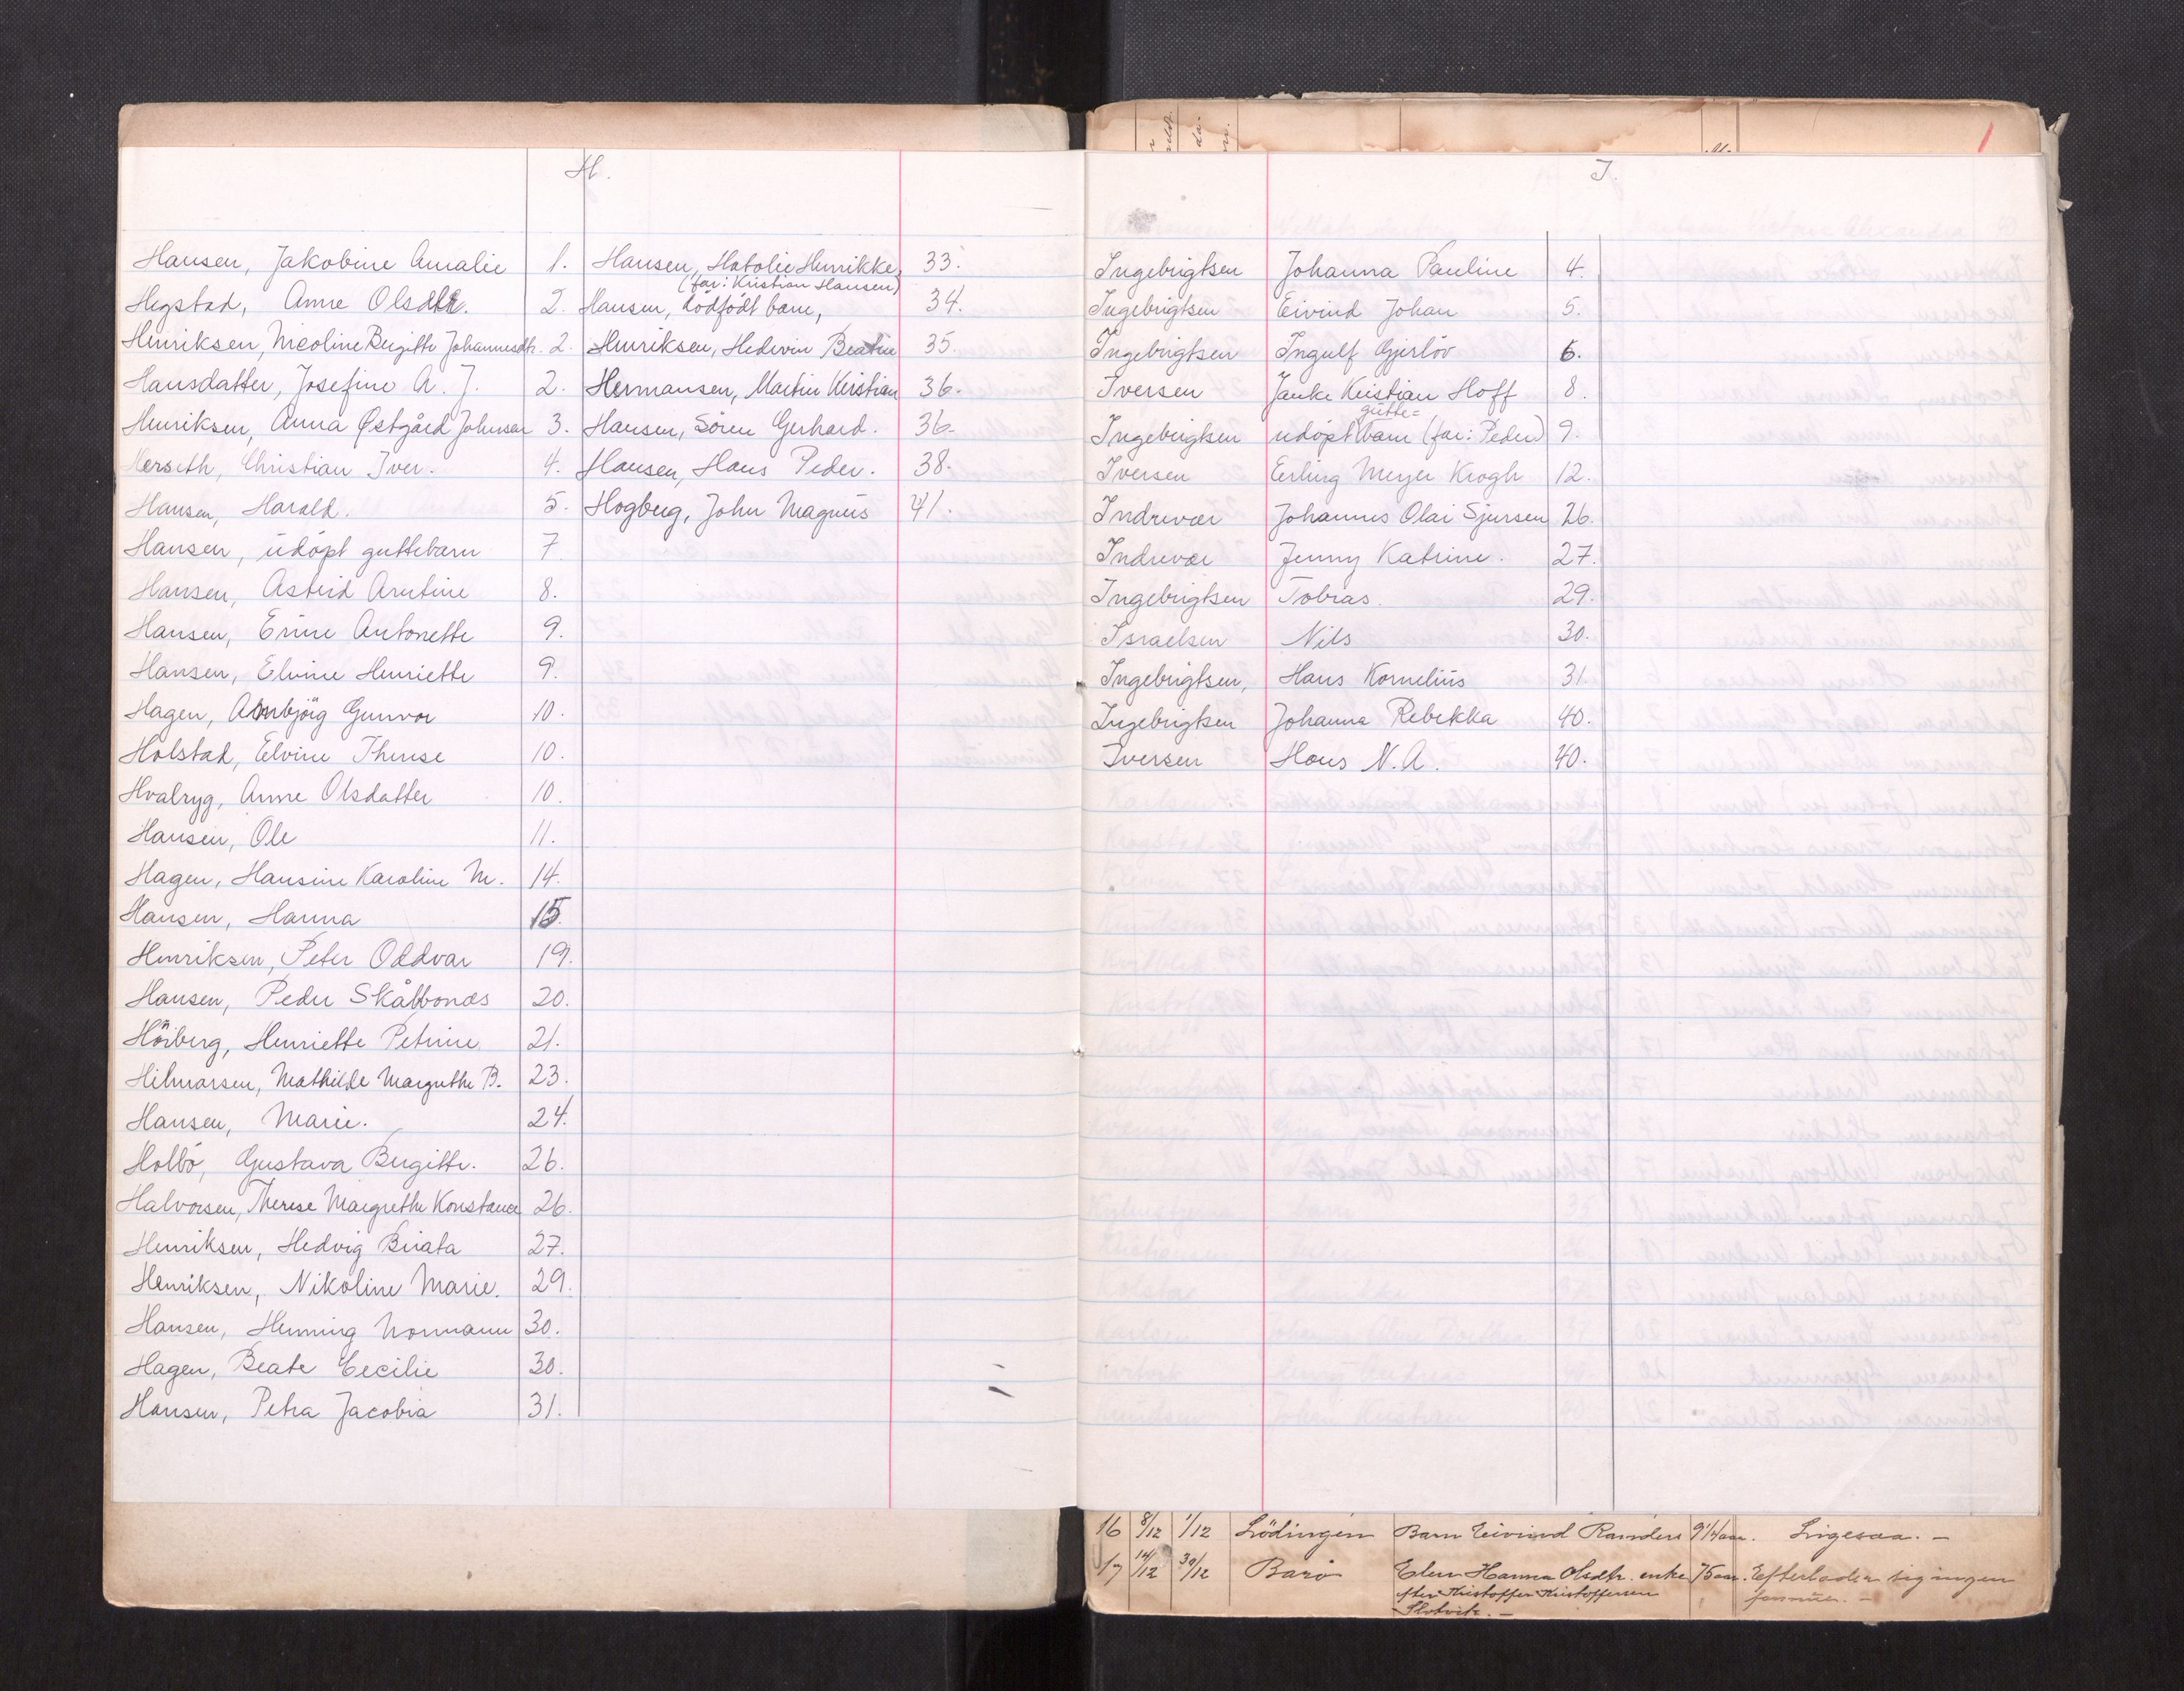 H.
Hansen, Jakobine Amalie 1.
Hegstad, Anne Olsdtr. 2.
Henriksen, Nicoline Birgitte Johannesdtr. 2.
Hansdatter, Josefine A. J. 2.
Henriksen, Anna Østgård Johnsen 3.
Herseth, Christian Iver. 4.
Hansen, Harald. 5.
Hansen, udöpt guttebarn 7.
Hansen, Astrid Arntine 8.
Hansen, Erine Antonette 9.
Hansen, Elvine Henriette 9.
Hagen, Arnbjörg Gunvor 10.
Holstad, Elvine Therese 10.
Hvalryg, Anne Olsdatter 10.
Hansen, Ole 11.
Hagen, Hansine Karoline M. 14.
Hansen, Hanna 15.
Henriksen, Peter Oddvar 19.
Hansen, Peder Skåbbonæs 20.
Höiberg, Henriette Petrine 21.
Hilmarsen, Mathilde Margrethe B. 23.
Hansen, Marie. 24.
Holbö, Gustava Birgitte. 26.
Halvorsen, Therese Margrethe Konstance 26.
Henriksen, Hedvig Beata 27.
Henriksen, Nikoline Marie. 29.
Hansen, Henning Normann 30.
Hagen, Beate Cecilie 30.
Hansen, Petra Jacobia 31.
Hansen, Hatolie Henrikke, 33.
(far: Kristian Hansen)
Hansen, dödfödt barn, 34.
Henriksen, Hedevin Beatin 35.
Hermansen, Martin Kristian 36.
Hansen, Sören Gerhard. 36.
Hansen, Hans Peder. 38.
Hogberg, John Magnus 41.
1
I.
Ingebrigtsen Johanna Pauline 4.
Ingebrigtsen Eivind Johan 5.
Ingebrigtsen Ingulf Gjerlöv 6.
Iversen Janke Kristian Hoff 8.
gutte=
Ingebrigtsen udöpt barn (far: Peder) 9.
Iversen Erling Meyer Krogh 12.
Indrevær Johannes Olai Sjursen 26.
Indrevær Jenny Katrine. 27.
Ingebrigtsen Tobias. 29.
Israelsen Nils 30.
Ingebrigtsen, Hans Kornelius 31.
Ingebrigtsen Johanna Rebekka 40.
Iversen Hans N. A. 40.
16 8/12 1/12 Lödingen Barn Eivind Randers 9 1/4 aar. Ligesaa. -
17 14/12 30/12 Barö Elen Hanna Olsdtr. enke 75 aar. Efterlader sig ingen
efter Kristoffer Kristoffersen
formue. -